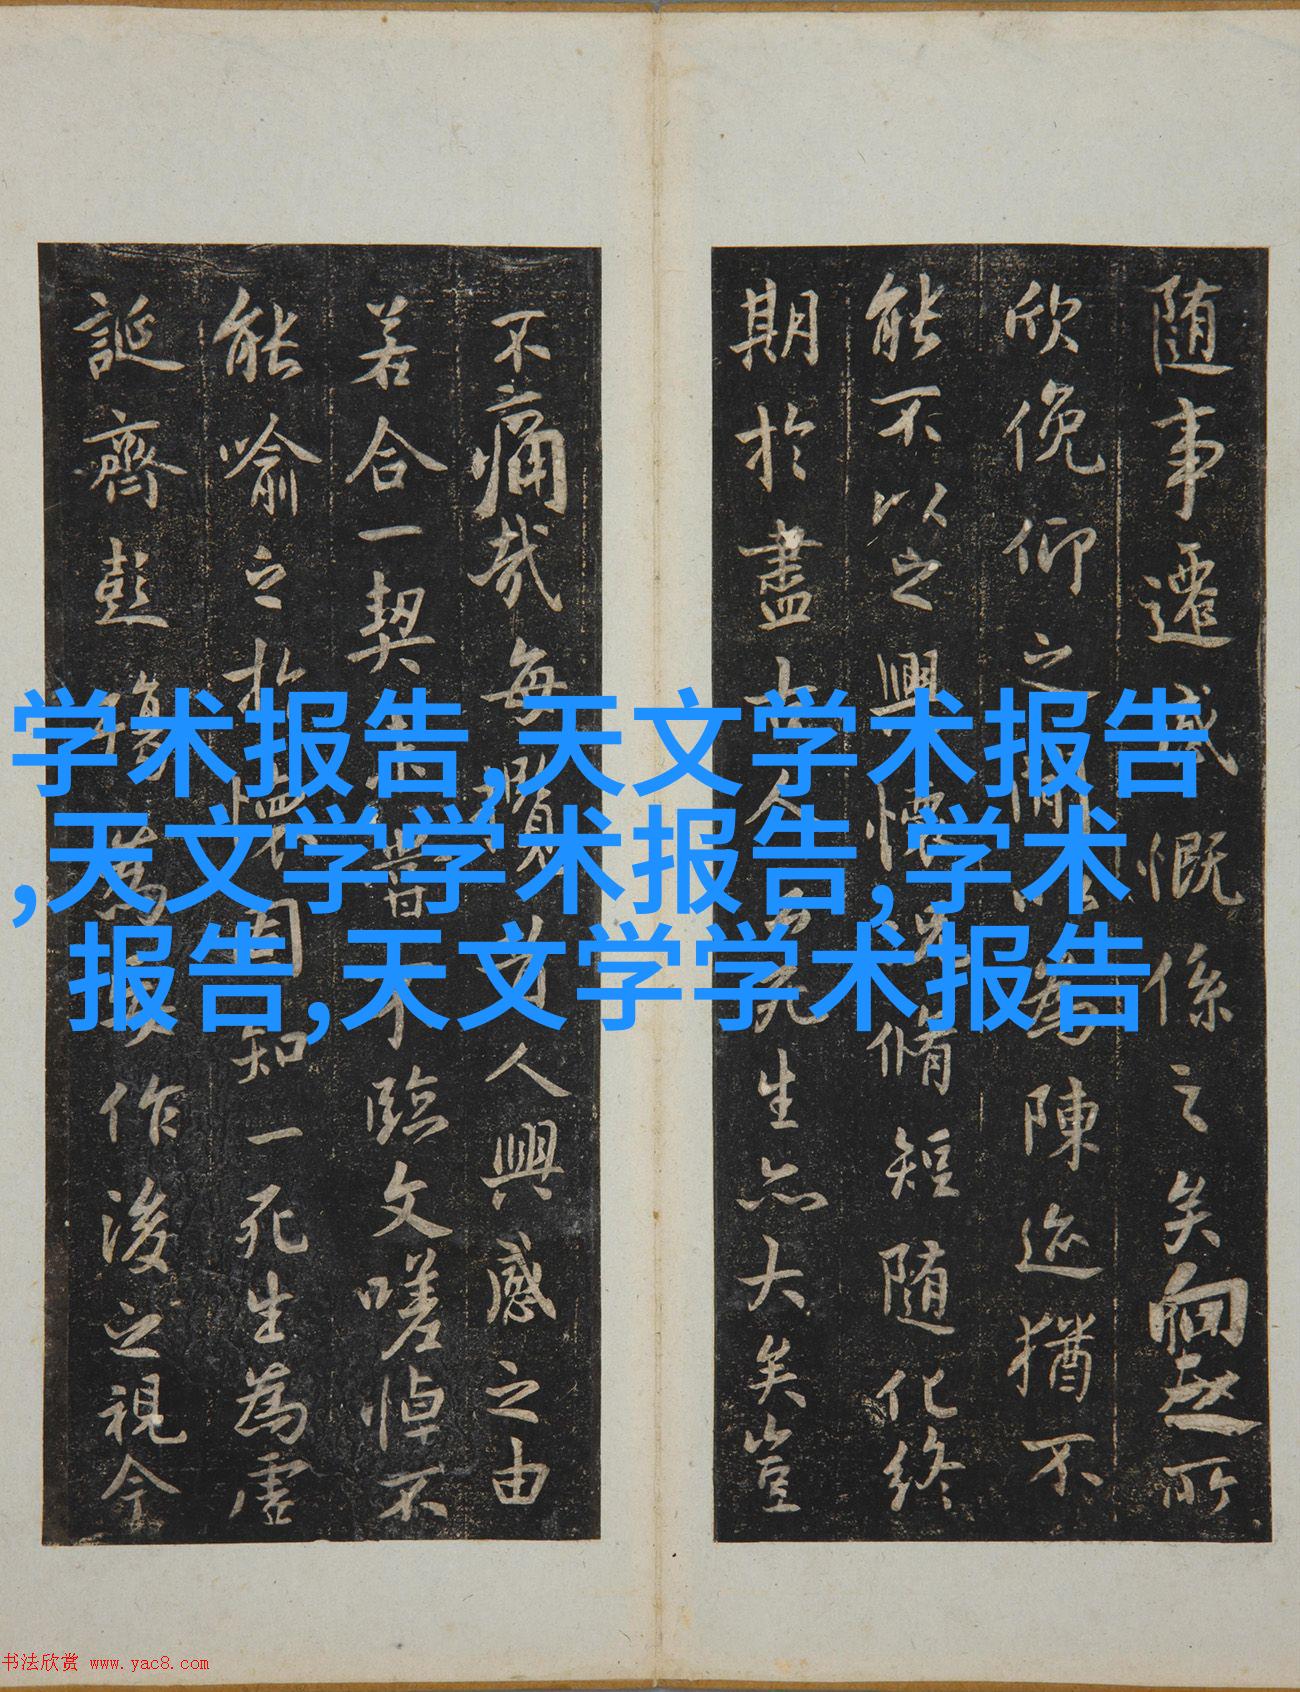 随事遷感慨係之矣向之所
欣俛仰之間以為陳迹猶不
能不以之興懷況脩短随化終
期於盡古人云死生亦大矣豈
不痛哉每攬昔人興感之由
若合一契未嘗不臨文嗟悼不
能喻之於懷固知一死生為虛
誕齊彭殤為妄作後之視今
学术报告,天文学术报告
,天文学学术报告,学术
报告,天文学学术报告
书法欣赏 www.yac8.com